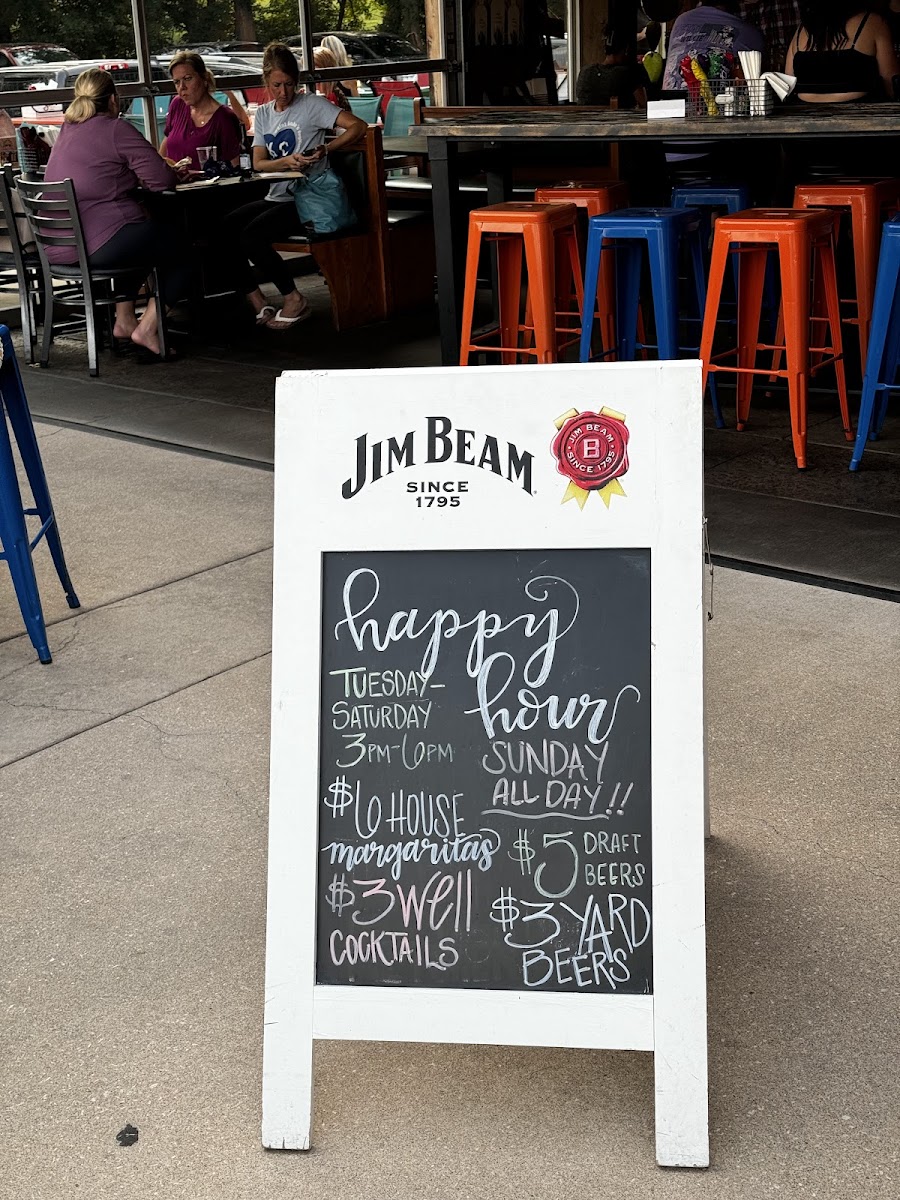 JIM BEAM
SINCE
1795
JIM BEAM
B
SINCE 1795
happy
hour
TUESDAY-
SATURDAY
3PM-6PM
SUNDAY
ALL DAY!!
$6 HOUSE
margaritas
$3 well
COCKTAILS
$5 DRAFT
BEERS
$3 YARD
BEERS